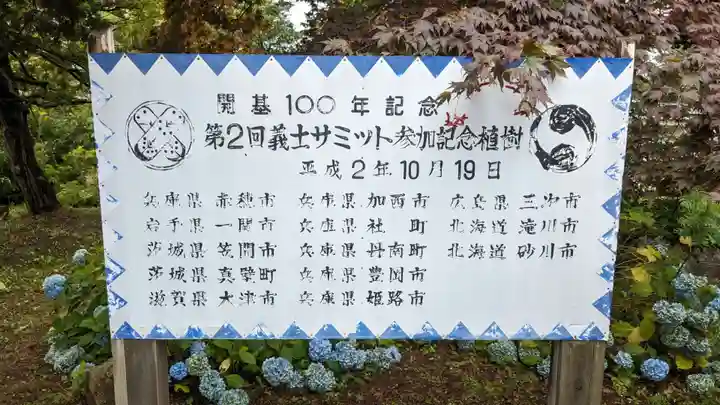 開基100年記念
第2回義士サミット参加記念植樹
平成2年10月19日
兵庫県 赤穂市 兵庫県 加西市 広島県 三次市
岩手県 一関市 兵庫県 社町 北海道 滝川市
茨城県 笠間市 兵庫県 丹南町 北海道 砂川市
茨城県 真壁町 兵庫県 豊岡市
滋賀県 大津市 兵庫県 姫路市